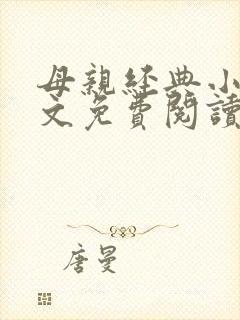 母親經典小
文免費閱讀
唐曼